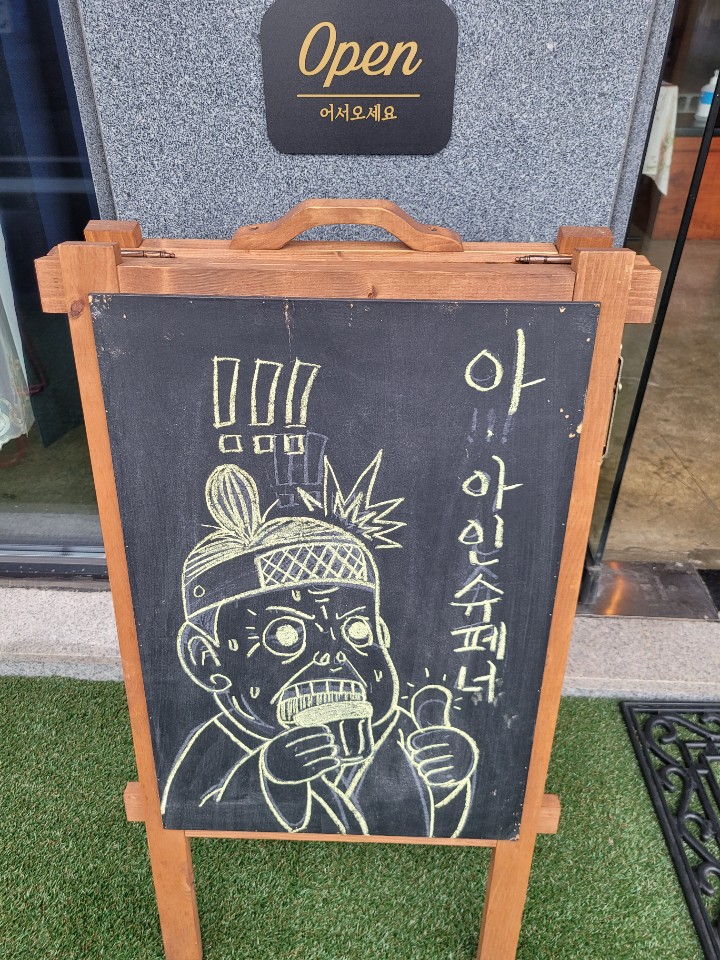 Open
어서오세요
!!!
아
!!!
아인슈페너